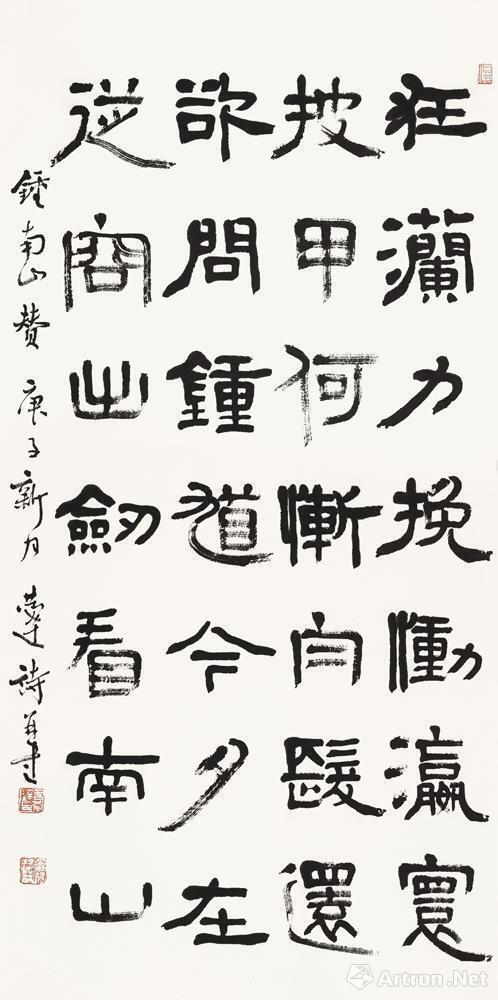 狂瀾力挽慟瀛寰
披甲何慚白髮還
欲問鍾馗今夕在
從容出劔看南山
鍾南山贊 庚子新月 詩并書
Artron.Net